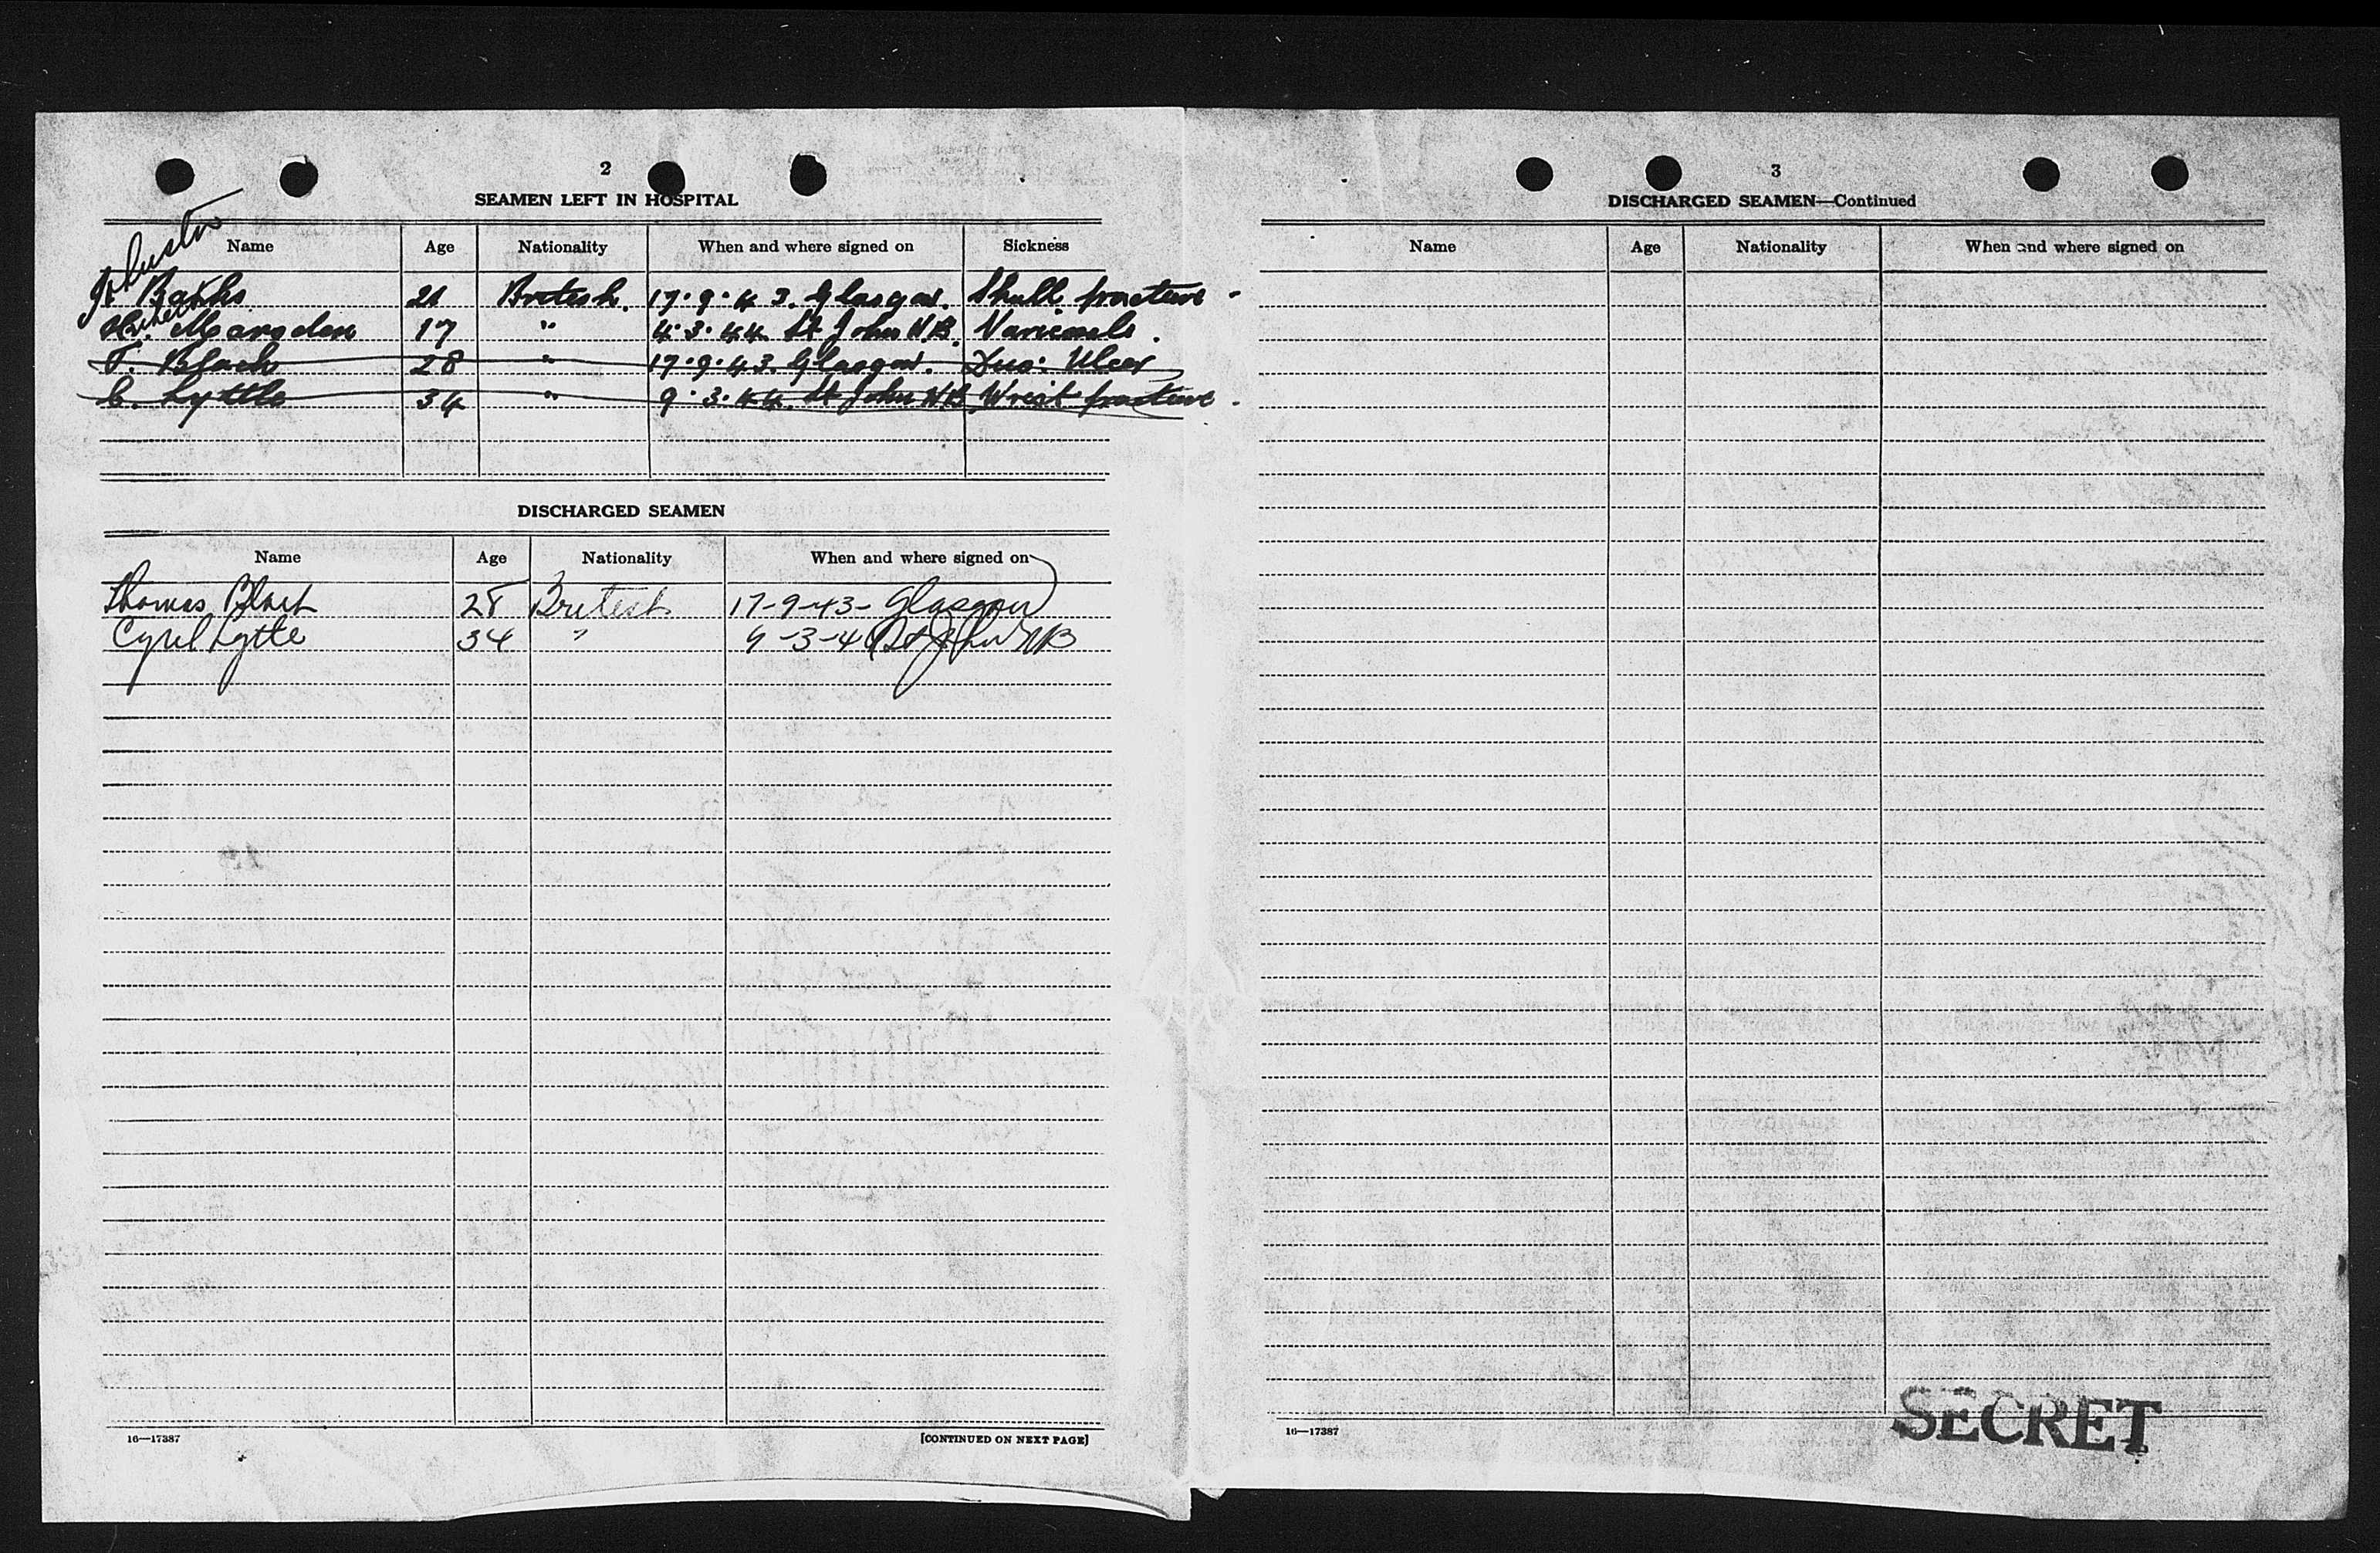 2
SEAMEN LEFT IN HOSPITAL
Name Age Nationality When and where signed on Sickness
Banks 21 British. 17.9.43. Glasgow. Skull fracture
H. Marsden 17 " 4.3.44 St John NB. Varicocele.
T. Black 28 " 17.9.43. Glasgow. Duo: Ulcer
C. Lyttle 34 " 9.3.44. St John NB Wrist fracture.
DISCHARGED SEAMEN
Name Age Nationality When and where signed on
Thomas Black 28 British 17-9-43- Glasgow
Cyril Lyttle 34 " 9-3-44 St John NB
16—17387
[CONTINUED ON NEXT PAGE]
3
DISCHARGED SEAMEN—Continued
Name Age Nationality When and where signed on
16—17387
SECRET